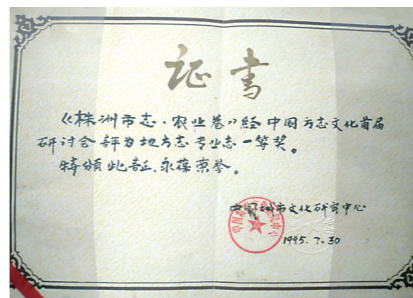 证书
《株洲市志·农业卷》经中国方志文化首届
研讨会评为地方志专业志一等奖。
特颁此证,永葆荣誉。
中国城市文化研究中心
1995.7.30